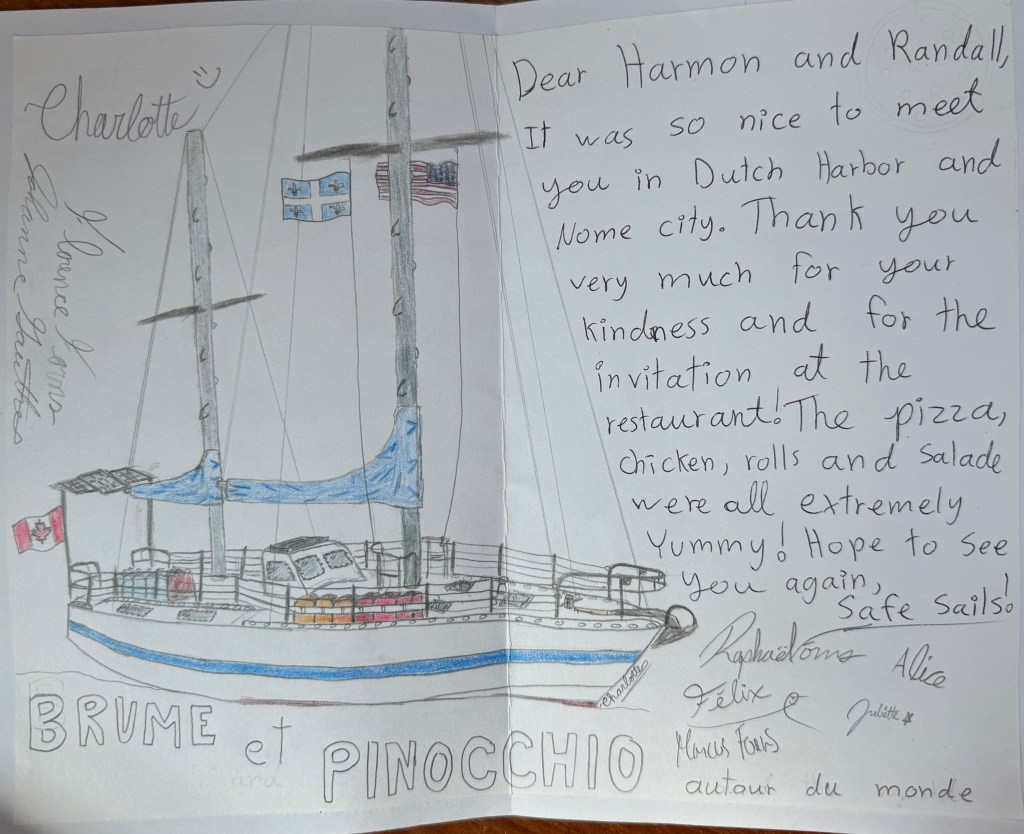 Charlotte
Johanne Gauthier
Florence Joms
Charlotte
BRUME et PINOCCHIO
Dear Harmon and Randall,
It was so nice to meet
you in Dutch Harbor and
Nome city. Thank you
very much for your
kindness and for the
invitation at the
restaurant! The pizza,
chicken, rolls and salade
were all extremely
Yummy! Hope to see
you again,
Safe Sails!
Raphaël
Alice
Félix
Juliette
Marcus
autour du monde